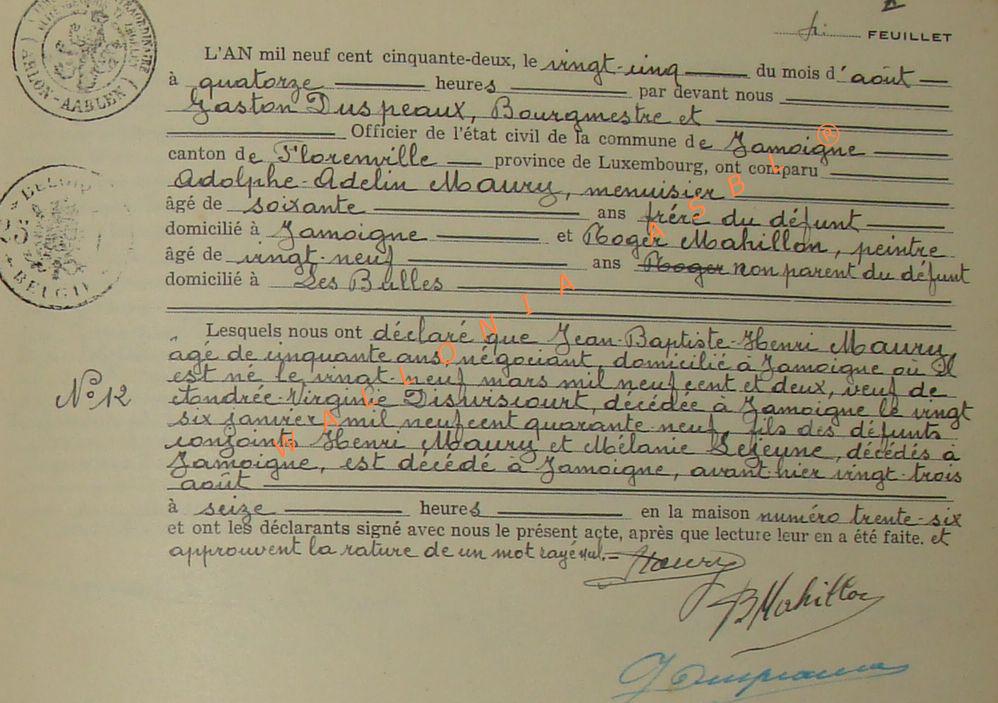 FEUILLET
L'AN mil neuf cent cinquante-deux, le vingt-cinq du mois d'août
à quatorze heures par devant nous
Gaston Duspeaux, Bourgmestre et
Officier de l'état civil de la commune de Jamoigne
canton de Florenville province de Luxembourg, ont comparu
Adolphe-Adelin Maury, menuisier
âgé de soixante ans frère du défunt
domicilié à Jamoigne et Roger Mahillon, peintre
âgé de vingt-neuf ans Roger non parent du défunt
domicilié à Les Bulles
Lesquels nous ont déclaré que Jean-Baptiste-Henri Maury,
âgé de cinquante ans, négociant, domicilié à Jamoigne où il
est né le vingt-neuf mars mil neuf cent et deux, veuf de
Andrée-Virginie Disviscourt, décédée à Jamoigne le vingt
six janvier mil neuf cent quarante-neuf, fils des défunts
conjoints Henri Maury et Mélanie Lejeune, décédés à
Jamoigne, est décédé à Jamoigne, avant-hier vingt-trois
août
à seize heures en la maison numéro trente-six
et ont les déclarants signé avec nous le présent acte, après que lecture leur en a été faite. et
approuvent la rature de un mot rayé nul.=
N° 12
Maury
Mahillon
ARLON-AARLEN
BELGIE
WALLONIA ASBL ®